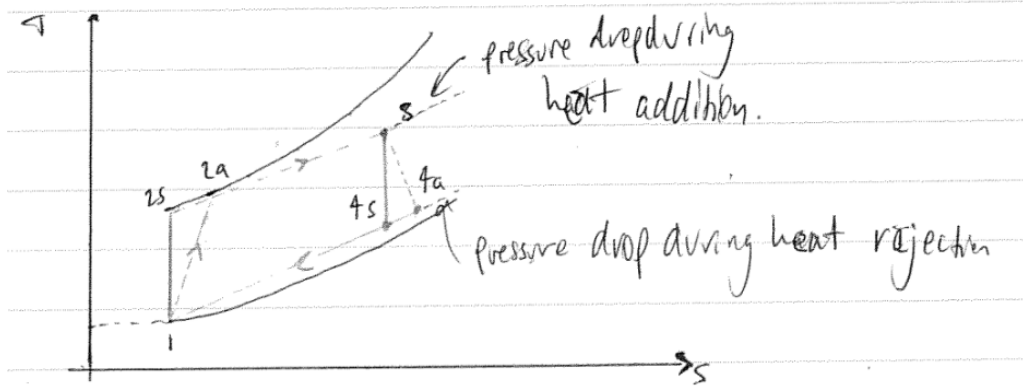 T
pressure drop during
heat addition.
3
2a
2s
4a
4s
pressure drop during heat rejection
1
S